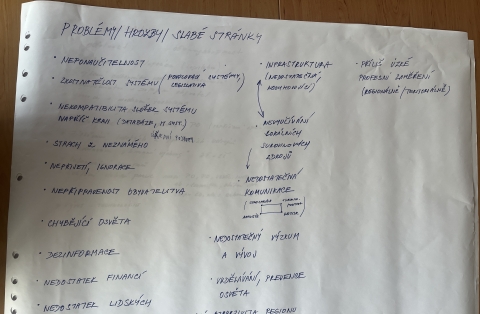 PROBLÉMY/HROZBY/SLABÉ STRÁNKY
• NEPOUČITELNOST
• ZKOSTNATĚLOST SYSTÉMU (PODPŮRNÉ SYSTÉMY,
LEGISLATIVA)
• NEKOMPATIBILITA SLOŽEK SYSTÉMU
NAPŘÍČ KRAJI (DATABÁZE,
• STRACH Z NEZNÁMÉHO
• NEPŘIJETÍ, IGNORACE
• NEPŘIPRAVENOST OBYVATELSTVA
• CHYBĚJÍCÍ OSVĚTA
• DEZINFORMACE
• NEDOSTATEK FINANCÍ
• NEDOSTATEK LIDSKÝCH
• INFRASTRUKTURA
(NEDOSTATEČNÁ,
• NEVYUŽÍVÁNÍ
LOKÁLNÍCH
SUROVINOVÝCH
ZDROJŮ
• NEDOSTATEČNÁ
KOMUNIKACE
• NEDOSTATEČNÝ VÝZKUM
A VÝVOJ
• VZDĚLÁVÁNÍ, PREVENCE
OSVĚTA
REGIONU
• PŘÍLIŠ ÚZKÉ
PROFESNÍ ZAMĚŘENÍ